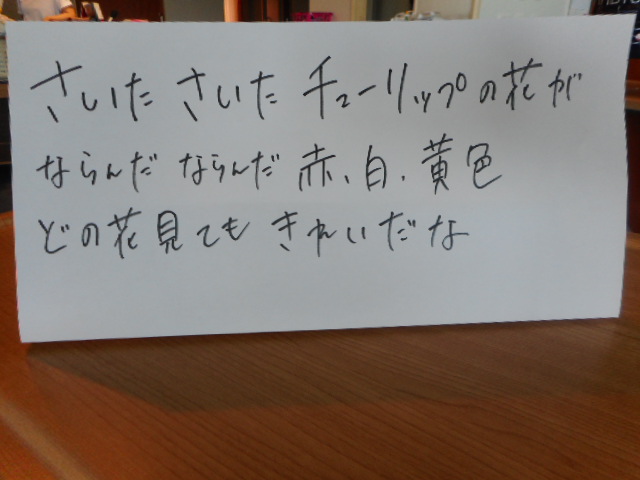 さいた さいた チューリップの花が
ならんだ ならんだ 赤、白、黄色
どの花見ても きれいだな